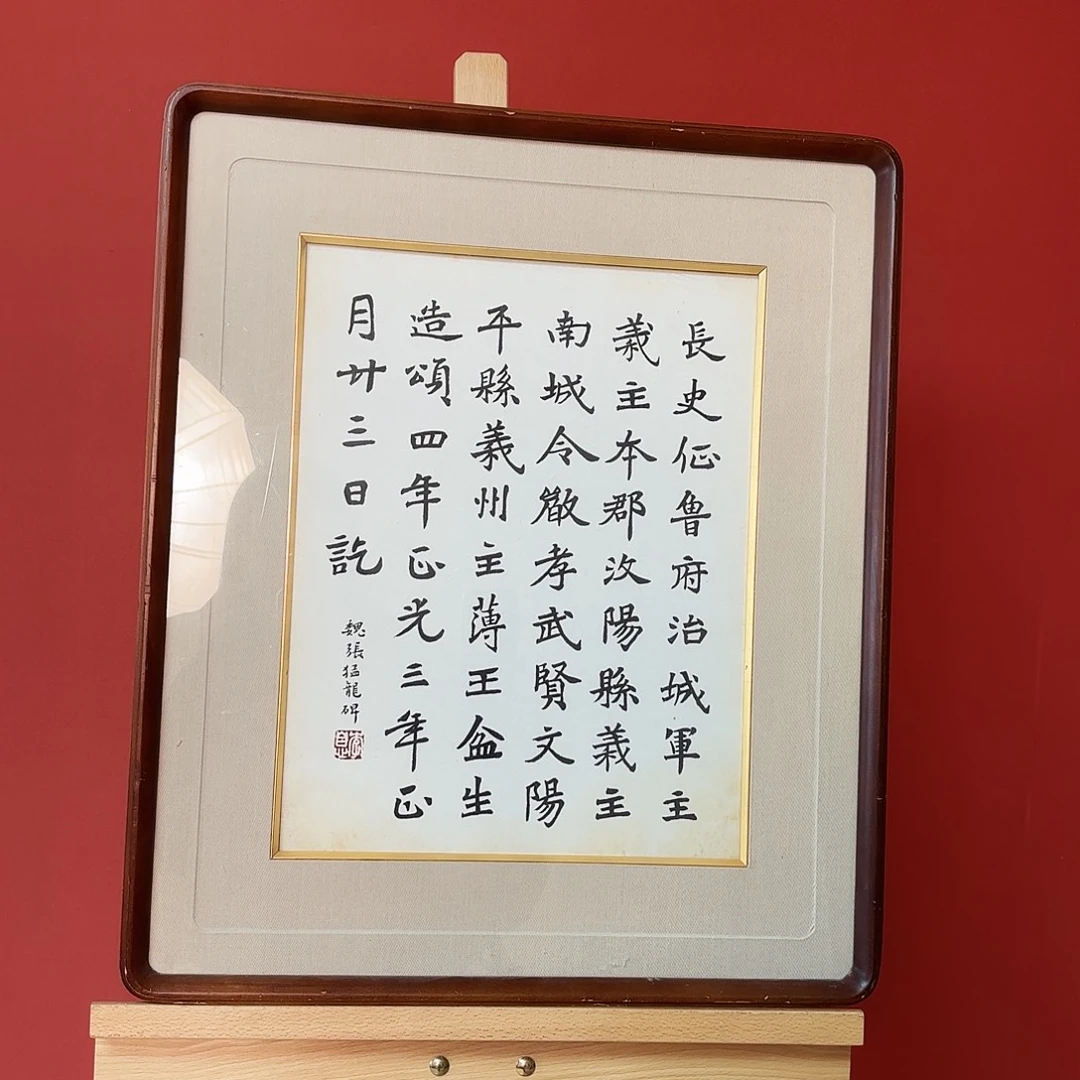 長史佂魯府治城軍主
義主本郡汶陽縣義主
南城令孝武賢文陽
平縣義州主薄王盆生
造頌四年正光三年正
月廿三日訖
魏張猛龍碑